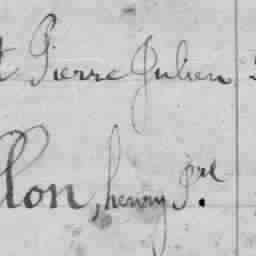 t Pierre Julien
llon, henry P.re